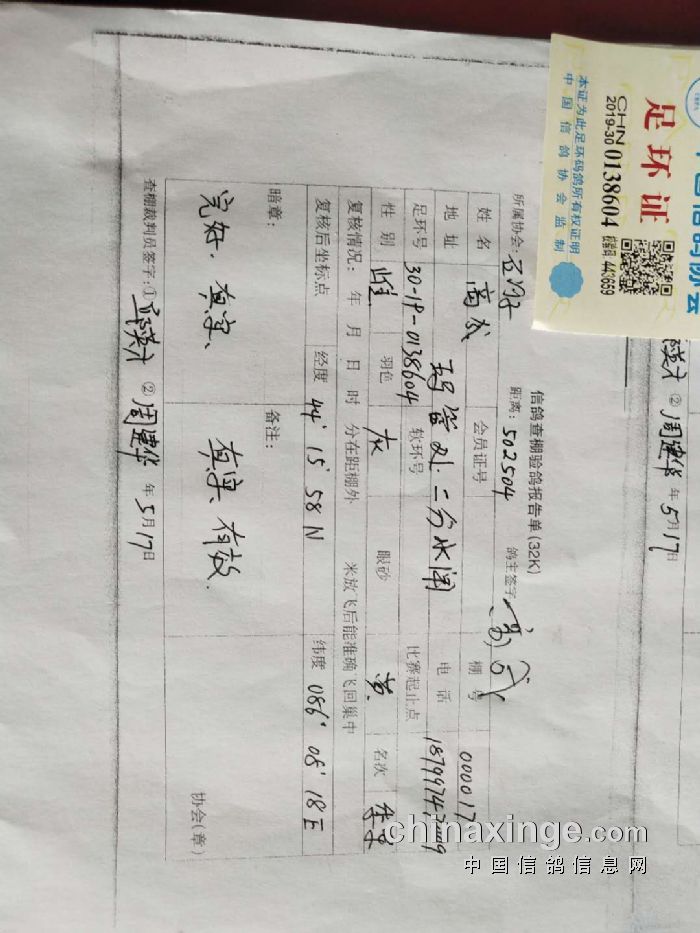 信鸽查棚验鸽报告单(32K)
所属协会: 距离: 502504 鸽主签字
姓名 高成 会员证号 棚号 000017
地址 玛管处二分水闸 电话
足环号 30-19-0138604 软环号 比赛起止点
性别 雌 羽色 灰 眼砂 黄 名次
复核情况: 年 月 日 时 分在距棚外 米放飞后能准确飞回巢中
复核后坐标点 经度 44°15'58N 纬度 086°08'18E
暗章: 备注:
完好、真实、 真实、有效.
协会(章)
查棚裁判员签字:① ②周建华 年5月17日
②周建华 年5月17日
足环证
CHN
2019-30 0138604
443659
本证为此足环码鸽所有权证明
中国信鸽协会监制
chinaxinge.com
中国信鸽信息网